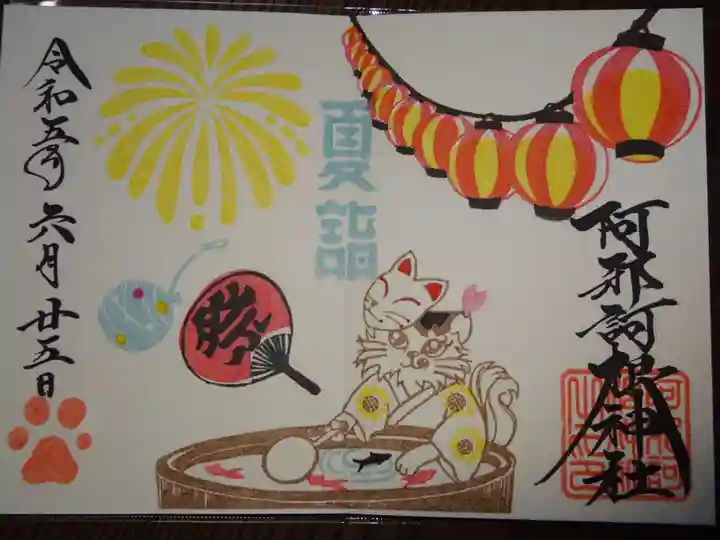 阿邪訶根神社
夏詣
令和五年六月廿五日